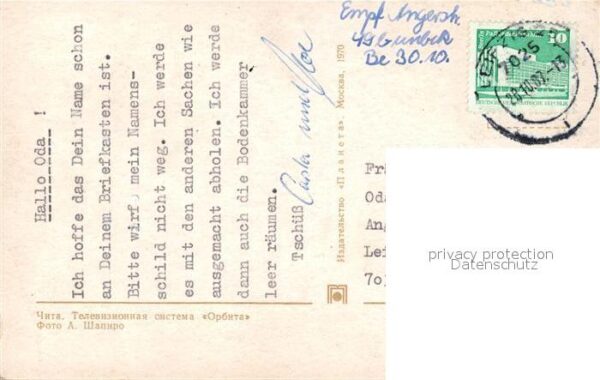 Hallo Oda !
Ich hoffe das Dein Name schon
an Deinem Briefkasten ist.
Bitte wirf mein Namens-
schild nicht weg. Ich werde
es mit den anderen Sachen wie
ausgemacht abholen. Ich werde
dann auch die Bodenkammer
leer räumen.
Tschüß
Издательство «Планета». Москва, 1970
Чита. Телевизионная система «Орбита»
Фото А. Шапиро
Empf
Be 30.10.
10
7025
Fr
Oda
An
Lei
7o
privacy protection
Datenschutz